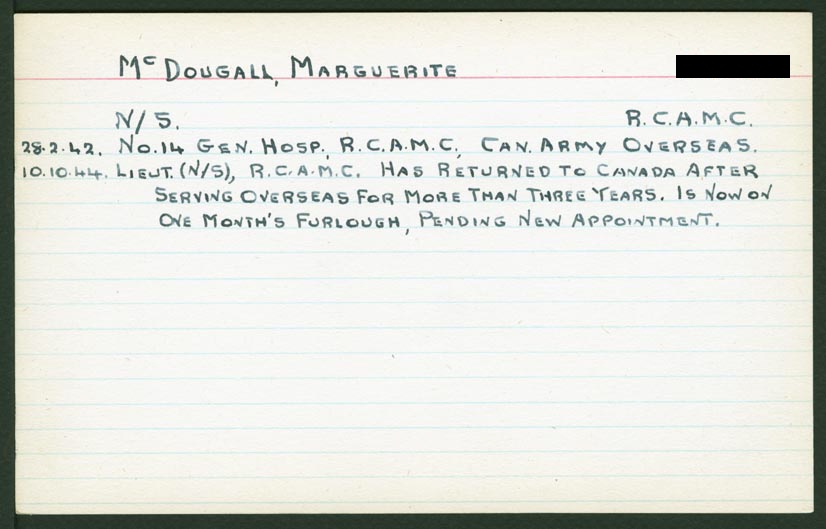 McDougall, Marguerite
N/S. R.C.A.M.C.
28.2.42. No.14 Gen. Hosp., R.C.A.M.C., Can. Army Overseas.
10.10.44. Lieut. (N/S), R.C.A.M.C. Has Returned To Canada After
Serving Overseas For More Than Three Years. Is Now on
One Month's Furlough, Pending New Appointment.